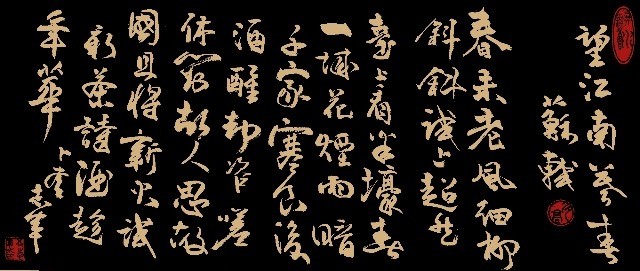 望江南暮春
蘇軾
春未老風細柳
斜斜試上超然
臺上看半壕春
一城花煙雨暗
千家寒食後
酒醒却咨嗟
休對故人思故
國且將新火試
新茶詩酒趁
年華